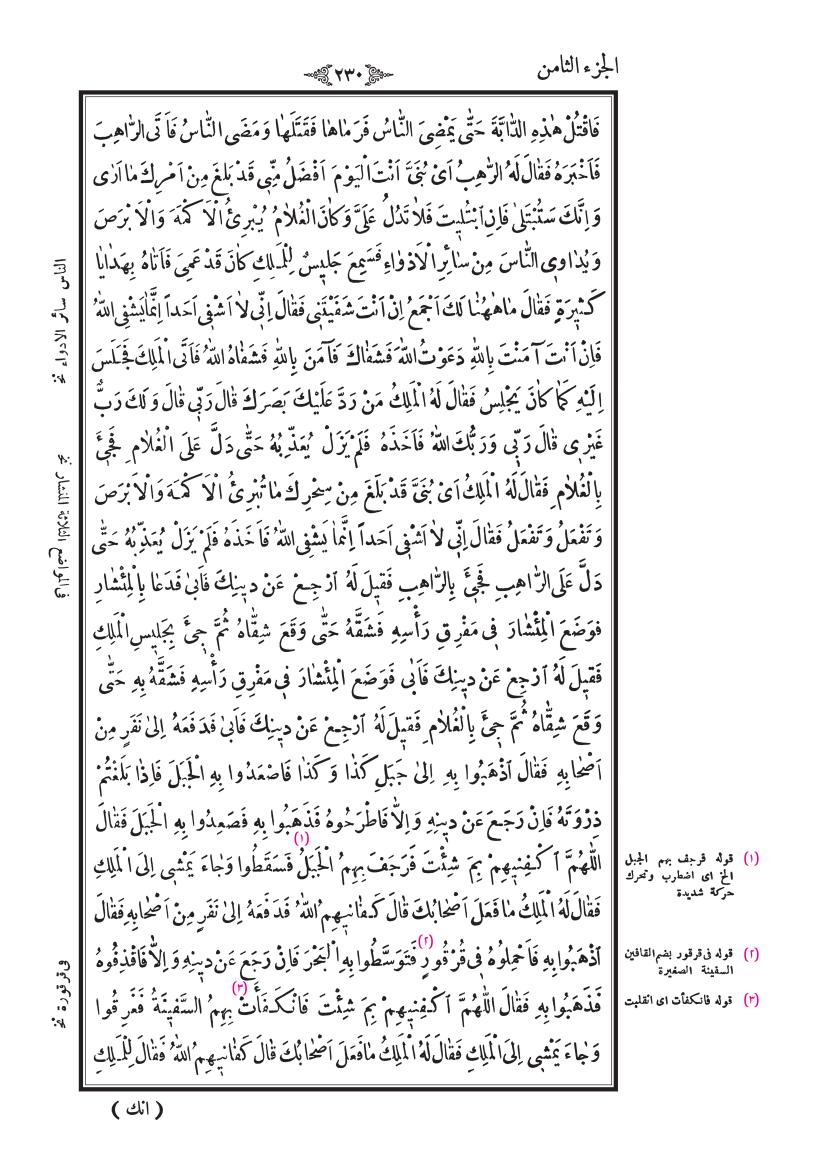 الجزء الثامن
٢٣٠
فَاقْتُلْ هٰذِهِ الدَّابَّةَ حَتّٰى يَمْضِىَ النَّاسُ فَرَمَاهَا فَقَتَلَهَا وَمَضَى النَّاسُ فَاَتَى الرَّاهِبَ
فَاَخْبَرَهُ فَقَالَ لَهُ الرَّاهِبُ اَىْ بُنَىَّ اَنْتَ الْيَوْمَ اَفْضَلُ مِنّٖى قَدْ بَلَغَ مِنْ اَمْرِكَ مَا اَرٰى
وَاِنَّكَ سَتُبْتَلٰى فَاِنِ ابْتُلٖيتَ فَلَا تَدُلَّ عَلَىَّ وَكَانَ الْغُلَامُ يُبْرِئُ الْاَكْمَهَ وَالْاَبْرَصَ
وَيُدَاوِى النَّاسَ مِنْ سَائِرِ الْاَدْوَاءِ فَسَمِعَ جَلٖيسٌ لِلْمَلِكِ كَانَ قَدْ عَمِىَ فَاَتَاهُ بِهَدَايَا
كَثٖيرَةٍ فَقَالَ مَا هٰهُنَا لَكَ اَجْمَعُ اِنْ اَنْتَ شَفَيْتَنٖى فَقَالَ اِنّٖى لَا اَشْفٖى اَحَداً اِنَّمَا يَشْفِى اللّٰهُ
فَاِنْ اَنْتَ آمَنْتَ بِاللّٰهِ دَعَوْتُ اللّٰهَ فَشَفَاكَ فَآمَنَ بِاللّٰهِ فَشَفَاهُ اللّٰهُ فَاَتَى الْمَلِكَ فَجَلَسَ
اِلَيْهِ كَمَا كَانَ يَجْلِسُ فَقَالَ لَهُ الْمَلِكُ مَنْ رَدَّ عَلَيْكَ بَصَرَكَ قَالَ رَبّٖى قَالَ وَلَكَ رَبٌّ
غَيْرٖى قَالَ رَبّٖى وَرَبُّكَ اللّٰهُ فَاَخَذَهُ فَلَمْ يَزَلْ يُعَذِّبُهُ حَتّٰى دَلَّ عَلَى الْغُلَامِ فَجٖئَ
بِالْغُلَامِ فَقَالَ لَهُ الْمَلِكُ اَىْ بُنَىَّ قَدْ بَلَغَ مِنْ سِحْرِكَ مَا تُبْرِئُ الْاَكْمَهَ وَالْاَبْرَصَ
وَتَفْعَلُ وَتَفْعَلُ فَقَالَ اِنّٖى لَا اَشْفٖى اَحَداً اِنَّمَا يَشْفِى اللّٰهُ فَاَخَذَهُ فَلَمْ يَزَلْ يُعَذِّبُهُ حَتّٰى
دَلَّ عَلَى الرَّاهِبِ فَجٖئَ بِالرَّاهِبِ فَقٖيلَ لَهُ ارْجِعْ عَنْ دٖينِكَ فَاَبٰى فَدَعَا بِالْمِئْشَارِ
فَوَضَعَ الْمِئْشَارَ فٖى مَفْرِقِ رَأْسِهِ فَشَقَّهُ حَتّٰى وَقَعَ شِقَّاهُ ثُمَّ جٖئَ بِجَلٖيسِ الْمَلِكِ
فَقٖيلَ لَهُ ارْجِعْ عَنْ دٖينِكَ فَاَبٰى فَوَضَعَ الْمِئْشَارَ فٖى مَفْرِقِ رَأْسِهِ فَشَقَّهُ بِهِ حَتّٰى
وَقَعَ شِقَّاهُ ثُمَّ جٖئَ بِالْغُلَامِ فَقٖيلَ لَهُ ارْجِعْ عَنْ دٖينِكَ فَاَبٰى فَدَفَعَهُ اِلٰى نَفَرٍ مِنْ
اَصْحَابِهِ فَقَالَ اذْهَبُوا بِهِ اِلٰى جَبَلِ كَذَا وَكَذَا فَاصْعَدُوا بِهِ الْجَبَلَ فَاِذَا بَلَغْتُمْ
ذِرْوَتَهُ فَاِنْ رَجَعَ عَنْ دٖينِهِ وَاِلَّا فَاطْرَحُوهُ فَذَهَبُوا بِهِ فَصَعِدُوا بِهِ الْجَبَلَ فَقَالَ
اللّٰهُمَّ اكْفِنٖيهِمْ بِمَ شِئْتَ فَرَجَفَ بِهِمُ الْجَبَلُ (١) فَسَقَطُوا وَجَاءَ يَمْشٖى اِلَى الْمَلِكِ
فَقَالَ لَهُ الْمَلِكُ مَا فَعَلَ اَصْحَابُكَ قَالَ كَفَانٖيهِمُ اللّٰهُ فَدَفَعَهُ اِلٰى نَفَرٍ مِنْ اَصْحَابِهِ فَقَالَ
اذْهَبُوا بِهِ فَاحْمِلُوهُ فٖى قُرْقُورٍ (٢) فَتَوَسَّطُوا بِهِ الْبَحْرَ فَاِنْ رَجَعَ عَنْ دٖينِهِ وَاِلَّا فَاقْذِفُوهُ
فَذَهَبُوا بِهِ فَقَالَ اللّٰهُمَّ اكْفِنٖيهِمْ بِمَ شِئْتَ فَانْكَفَأَتْ (٣) بِهِمُ السَّفٖينَةُ فَغَرِقُوا
وَجَاءَ يَمْشٖى اِلَى الْمَلِكِ فَقَالَ لَهُ الْمَلِكُ مَا فَعَلَ اَصْحَابُكَ قَالَ كَفَانٖيهِمُ اللّٰهُ فَقَالَ لِلْمَلِكِ
( انك )
(١) قوله فرجف بهم الجبل
الخ اى اضطرب وتحرك
حركة شديدة
(٢) قوله فى قرقور بضم القافين
السفينة الصغيرة
(٣) قوله فانكفأت اى انقلبت
الناس سائر الادواء نخ
فى المواضع الثلاثة المنشار نخ
فى قرقورة نخ